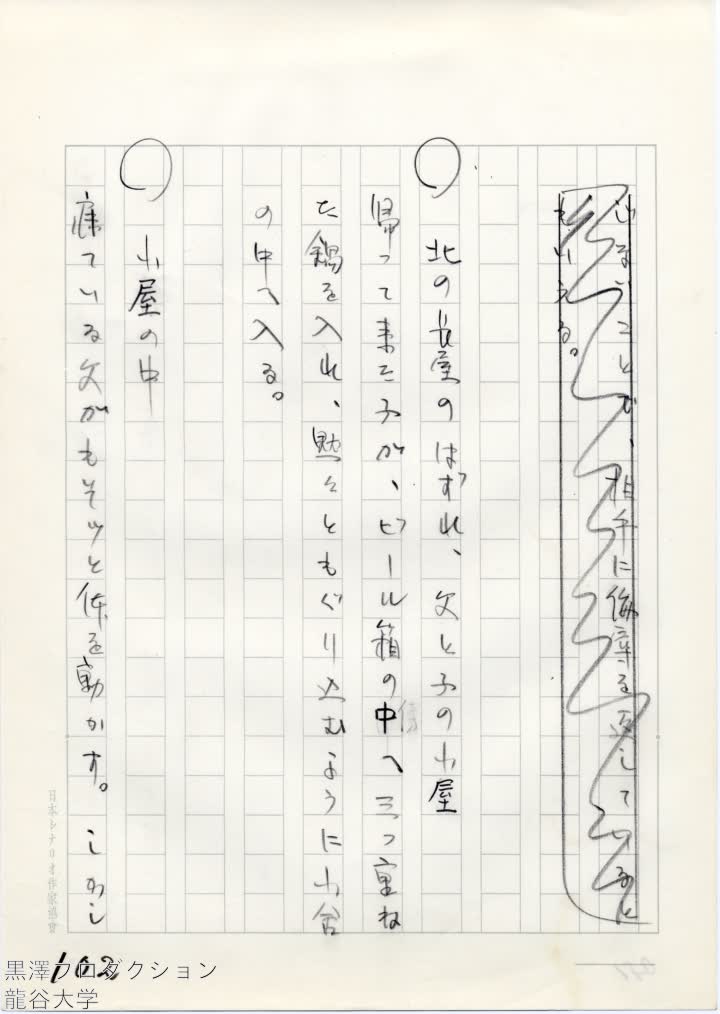 しないことで、相手に侮辱を返しているとも
もいえる。
北の長屋のはずれ、父と子の小屋
帰って来た子が、ビール箱の中へ三つ重ね
た鍋を入れ、黙々ともぐり込むように小舎
の中へ入る。
小屋の中
寝ている父がもそッと体を動かす。しかし
日本シナリオ作家協會
102
黒澤プロダクション
龍谷大学